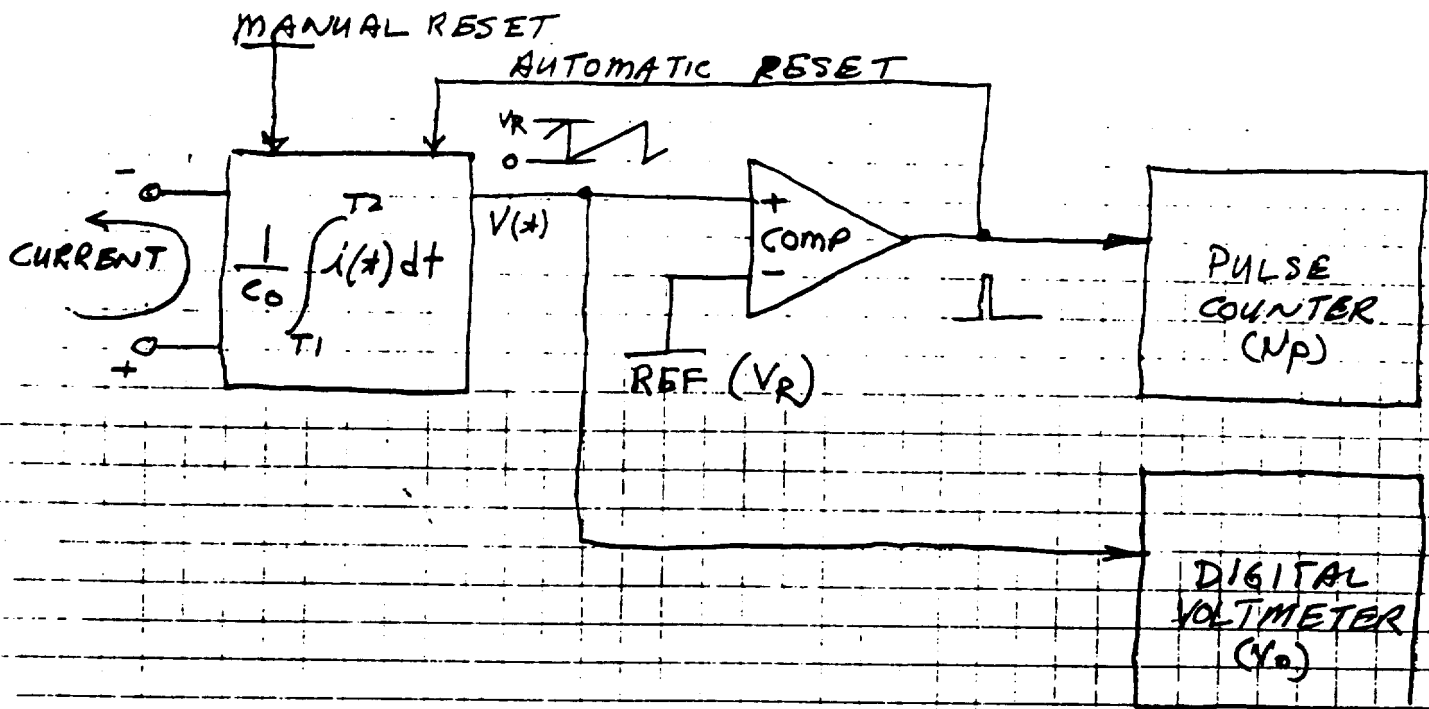 MANUAL RESET
AUTOMATIC RESET
VR
0
-
CURRENT
+
1/C0 ∫ T1 T2 i(t) dt
V(t)
+
COMP
-
REF (VR)
PULSE
COUNTER
(NP)
DIGITAL
VOLTMETER
(V0)